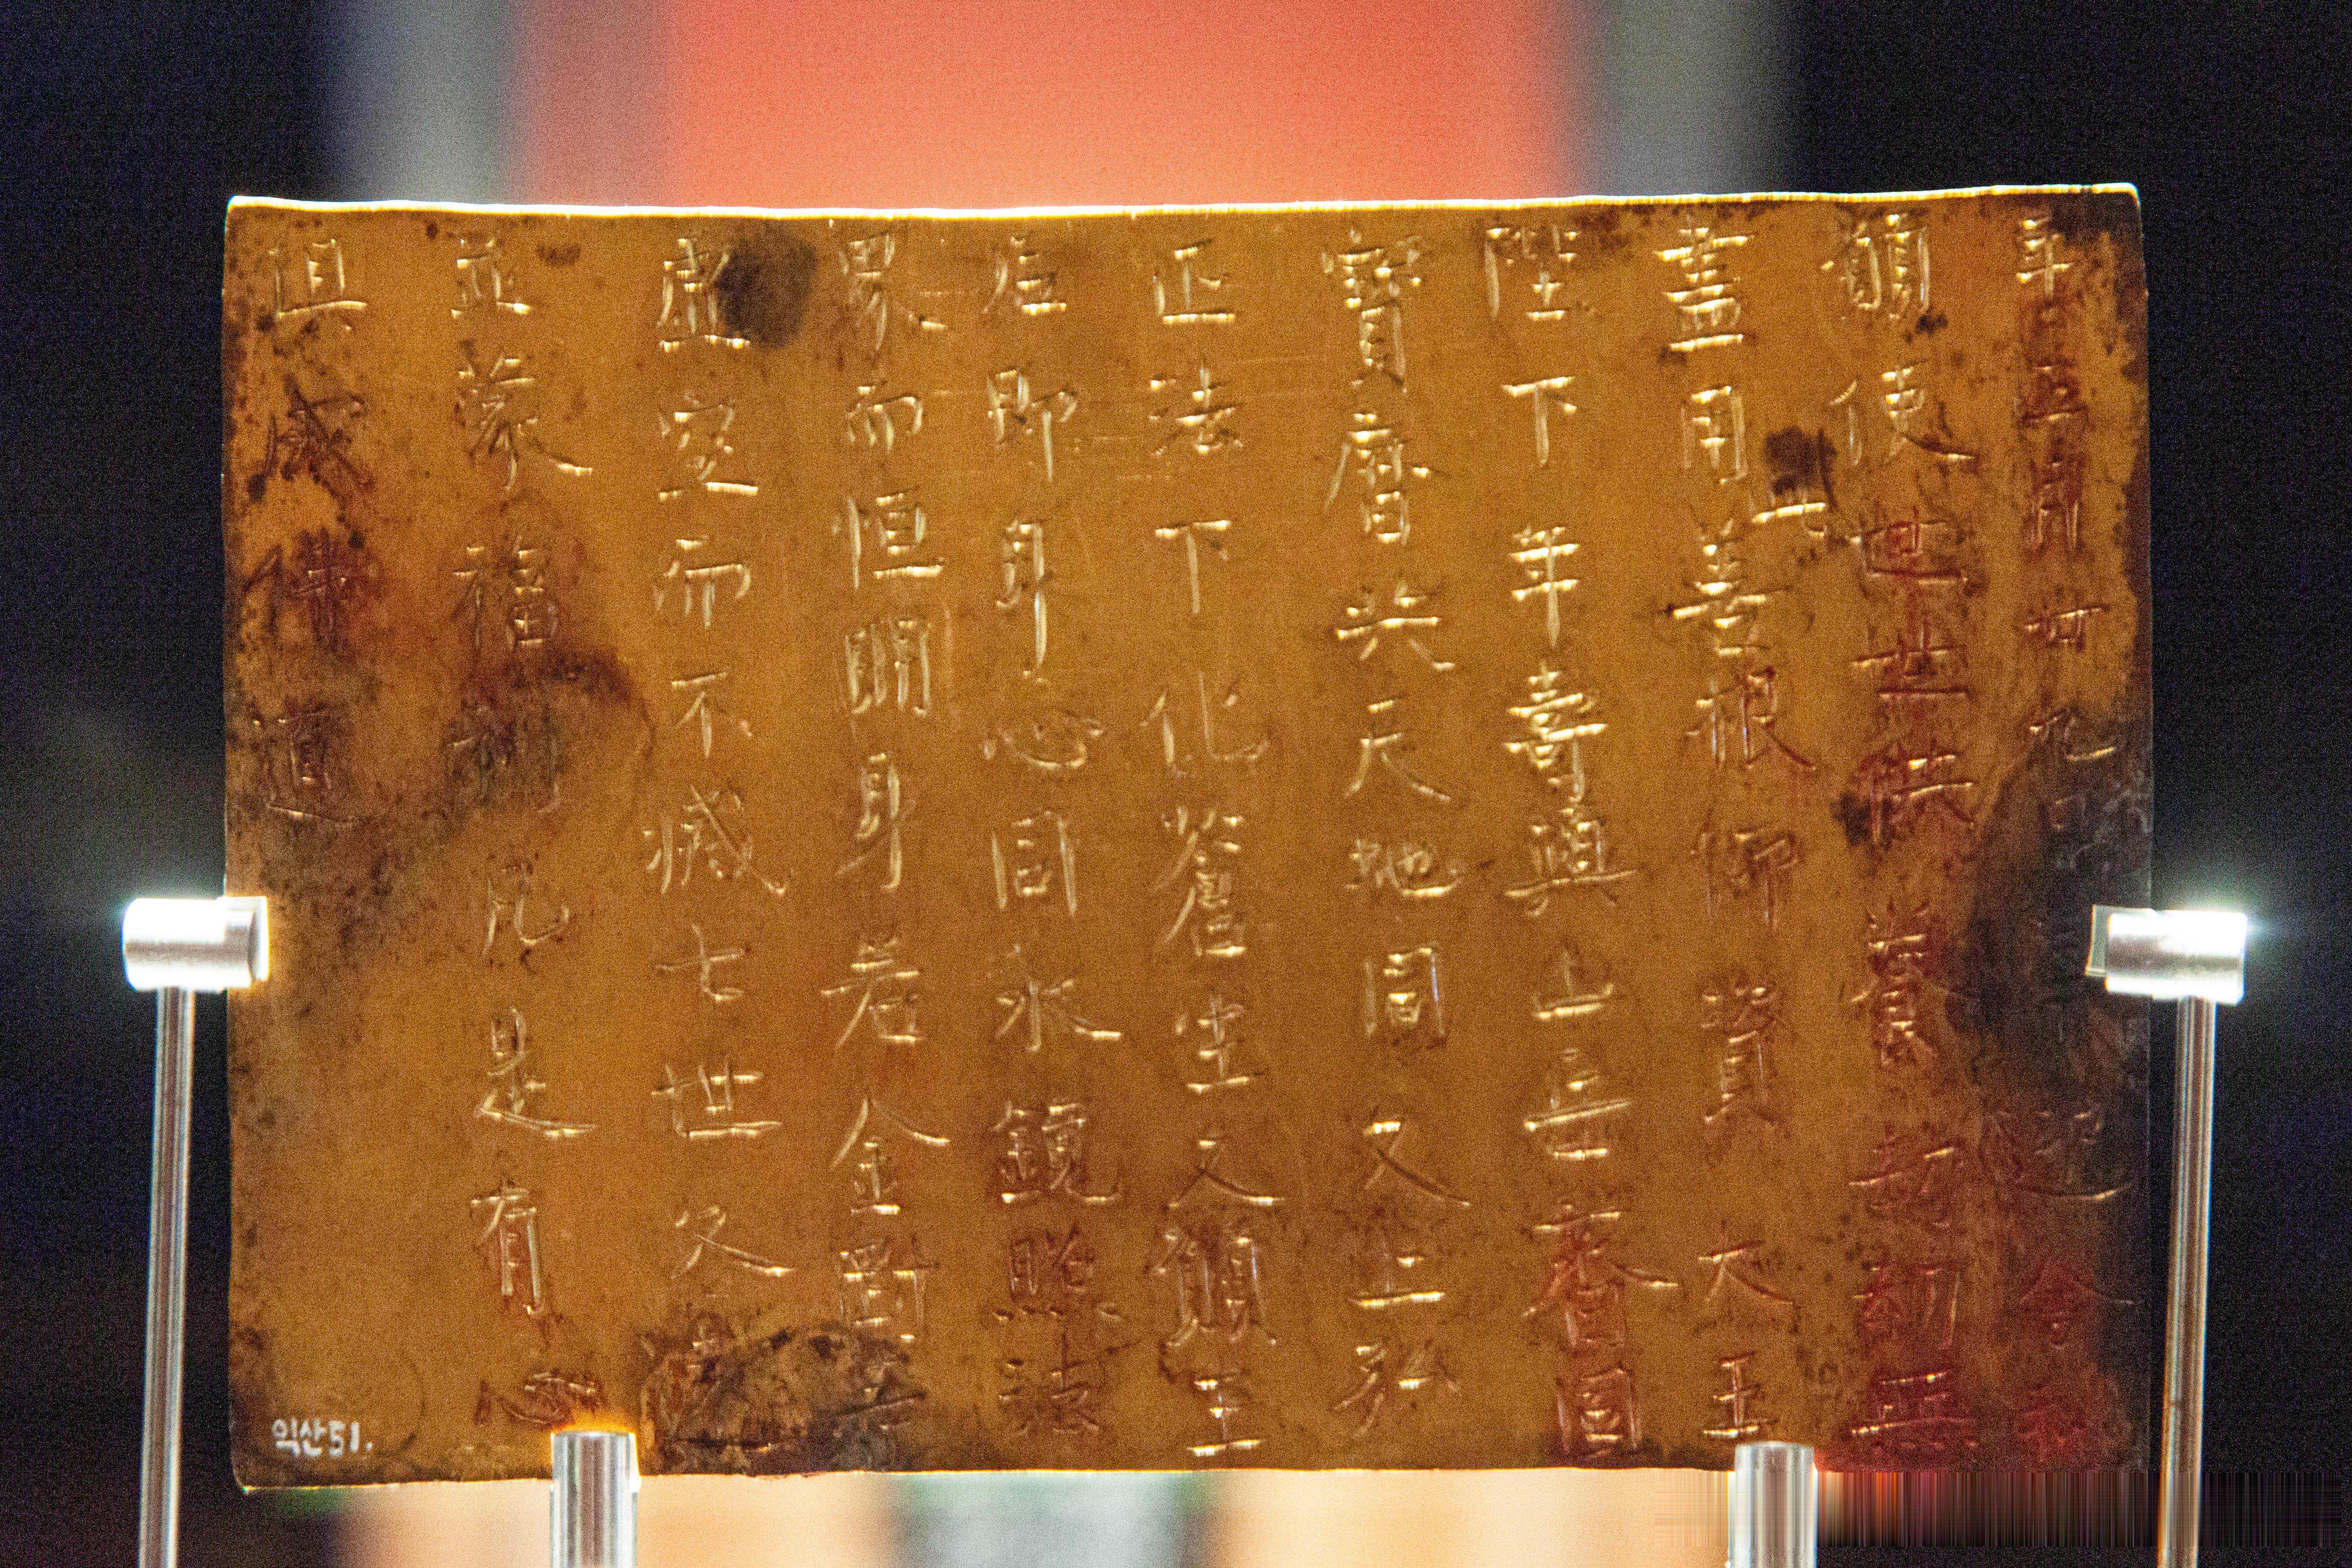 年正月卄九日奉迎舍利
願使世世供養劫劫無
盡用此善根仰資大王
陛下年壽與山岳齊固
寶曆共天地同久上弘
正法下化蒼生又願王
后即身心同水鏡照法
界而恒明身若金剛等
虛空而不滅七世久遠
並蒙福利凡是有心
俱成佛道
익산51.